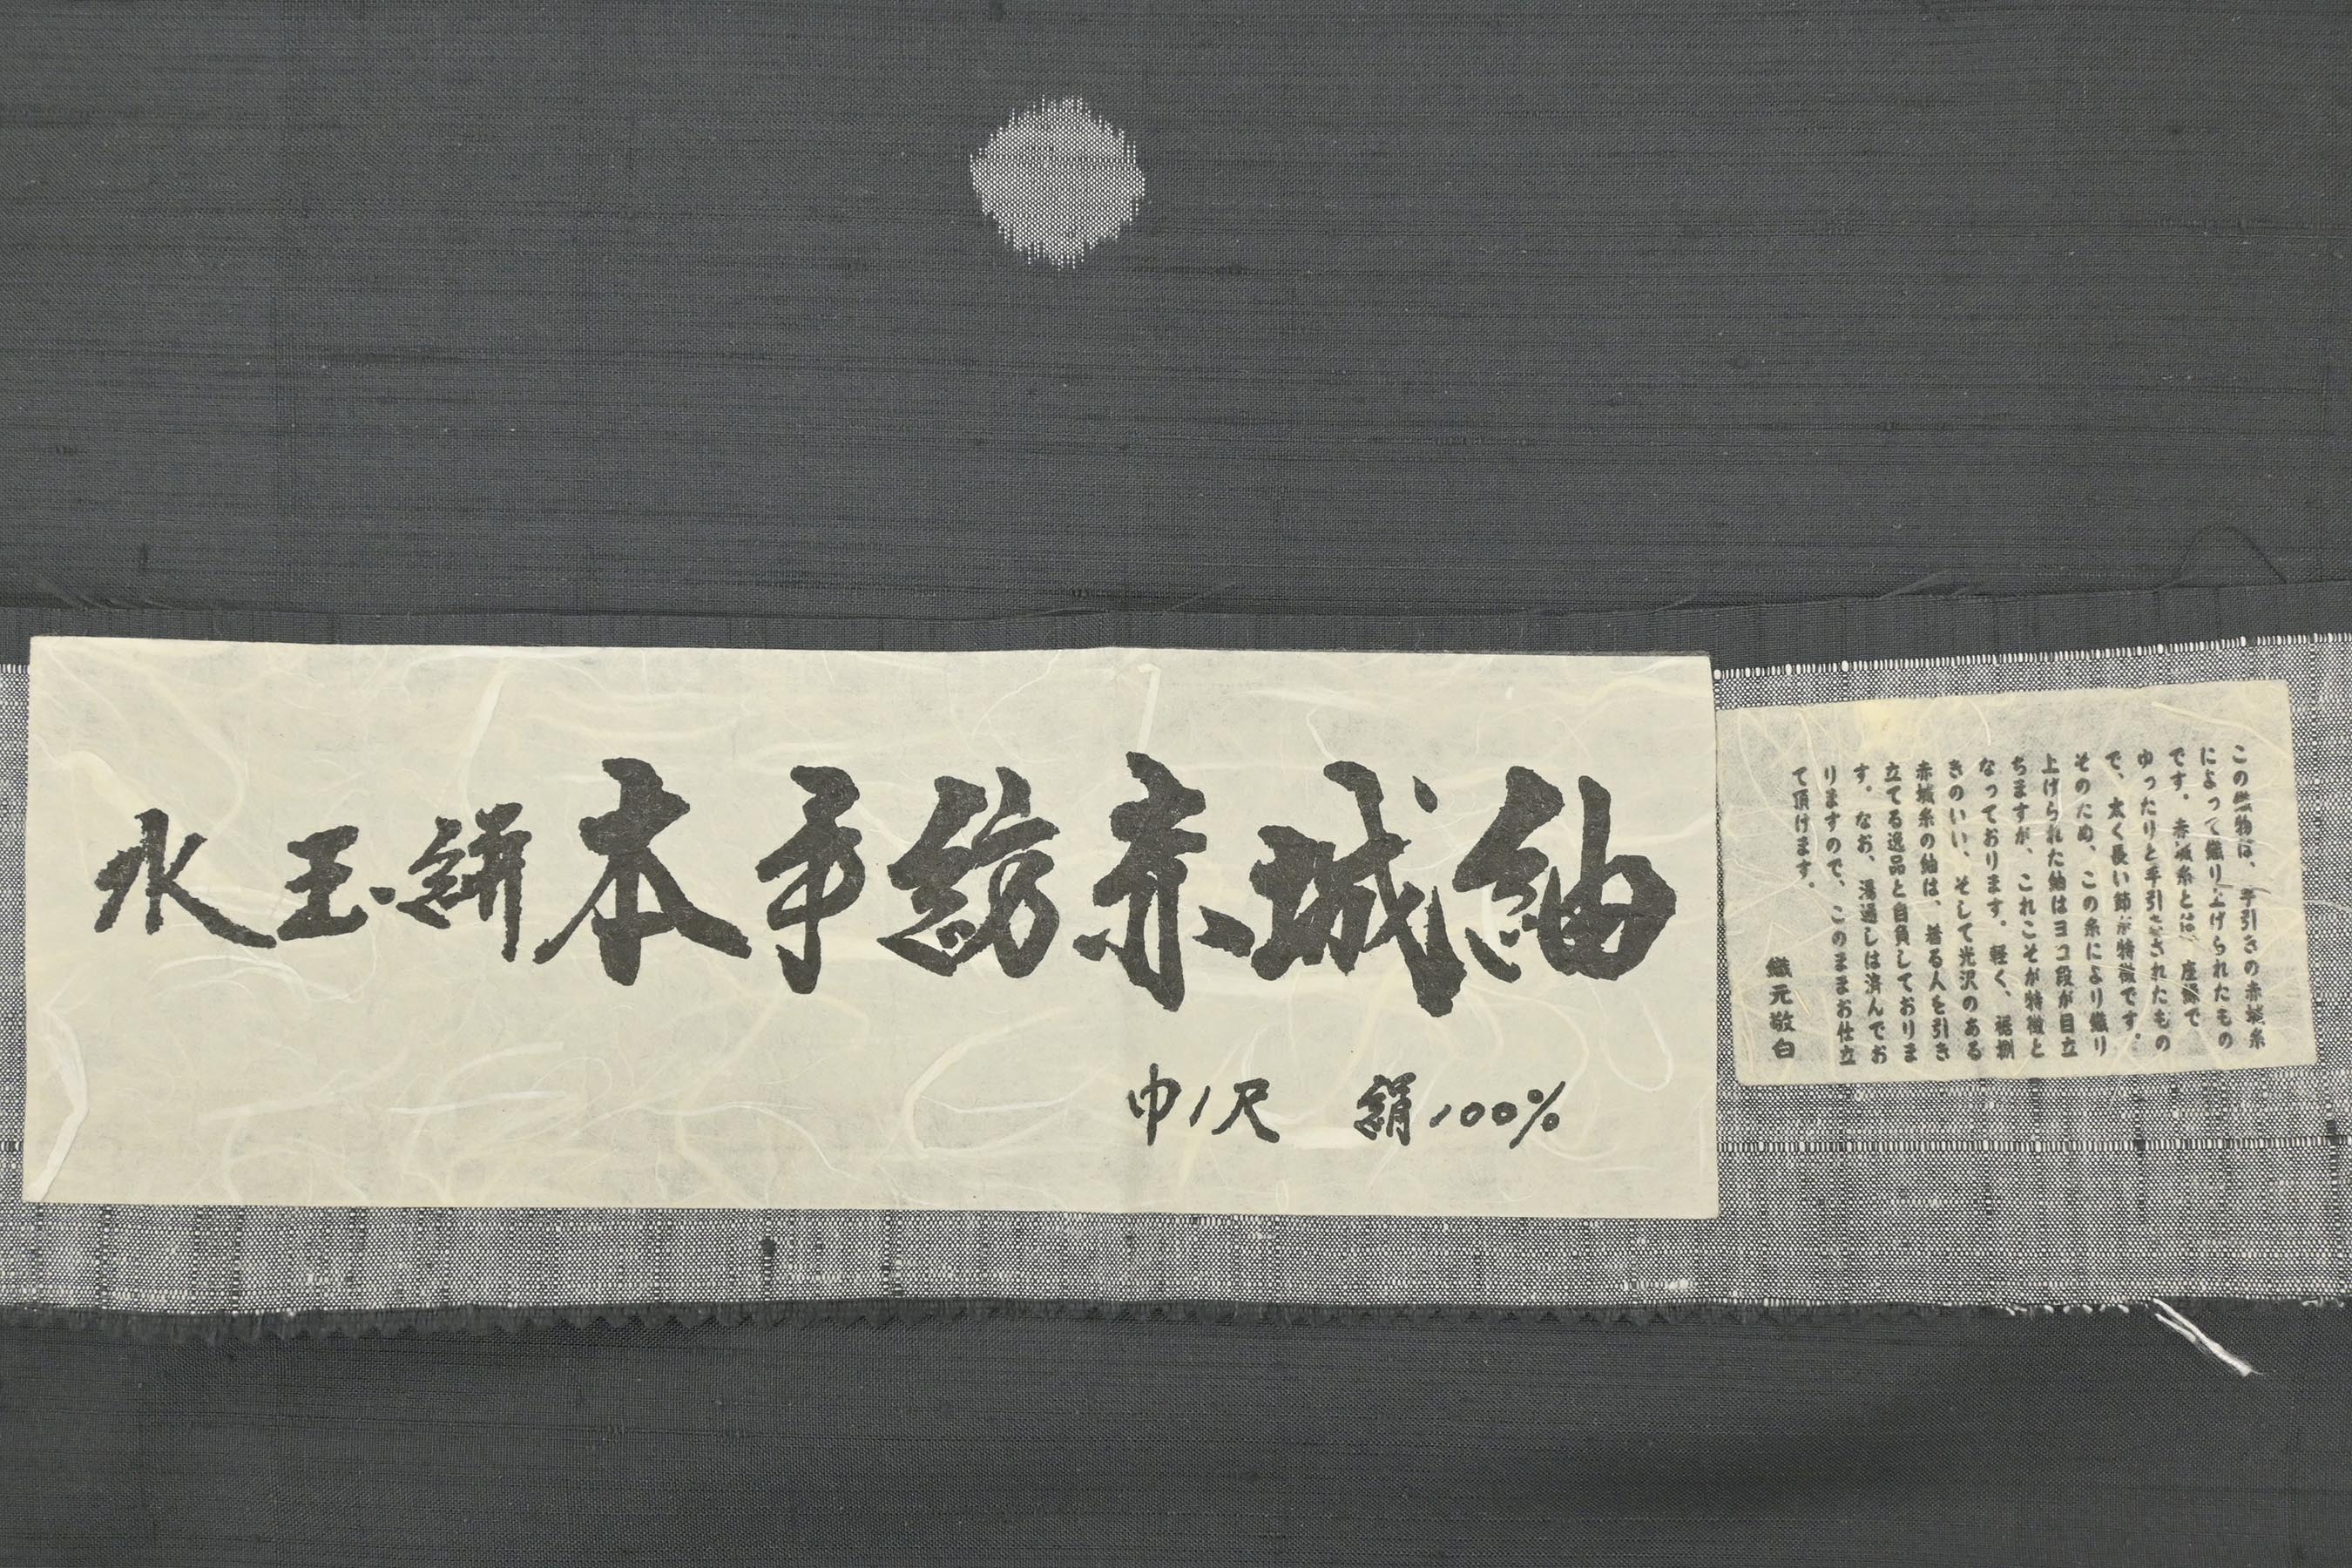 水玉絣本手紡赤城紬
巾1尺 絹100%
この織物は、手引きの赤城糸
によって織り上げられたもの
です。赤城糸とは、座繰で
ゆったりと手引きされたもの
で、太く長い節が特徴です。
そのため、この糸により織り
上げられた紬はヨコ段が目立
ちますが、これこそが特徴と
なっております。軽く、裾捌
きのいい、そして光沢のある
赤城糸の紬は、着る人を引き
立てる逸品と自負しておりま
す。なお、湯通しは済んでお
りますので、このままお仕立
て頂けます。
織元敬白